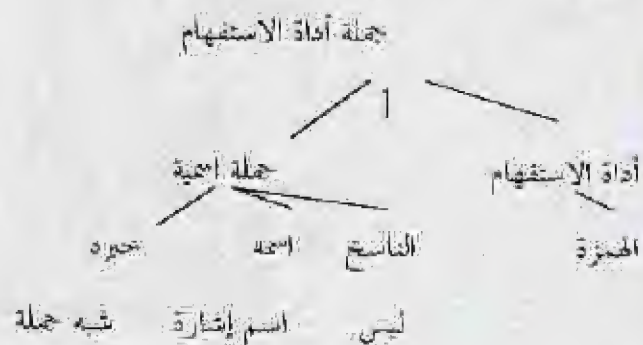 جملة أداة الاستفهام
أداة الاستفهام جملة اسمية
الهمزة الناسخ اسمه خبره
ليس اسم إشارة شبه جملة